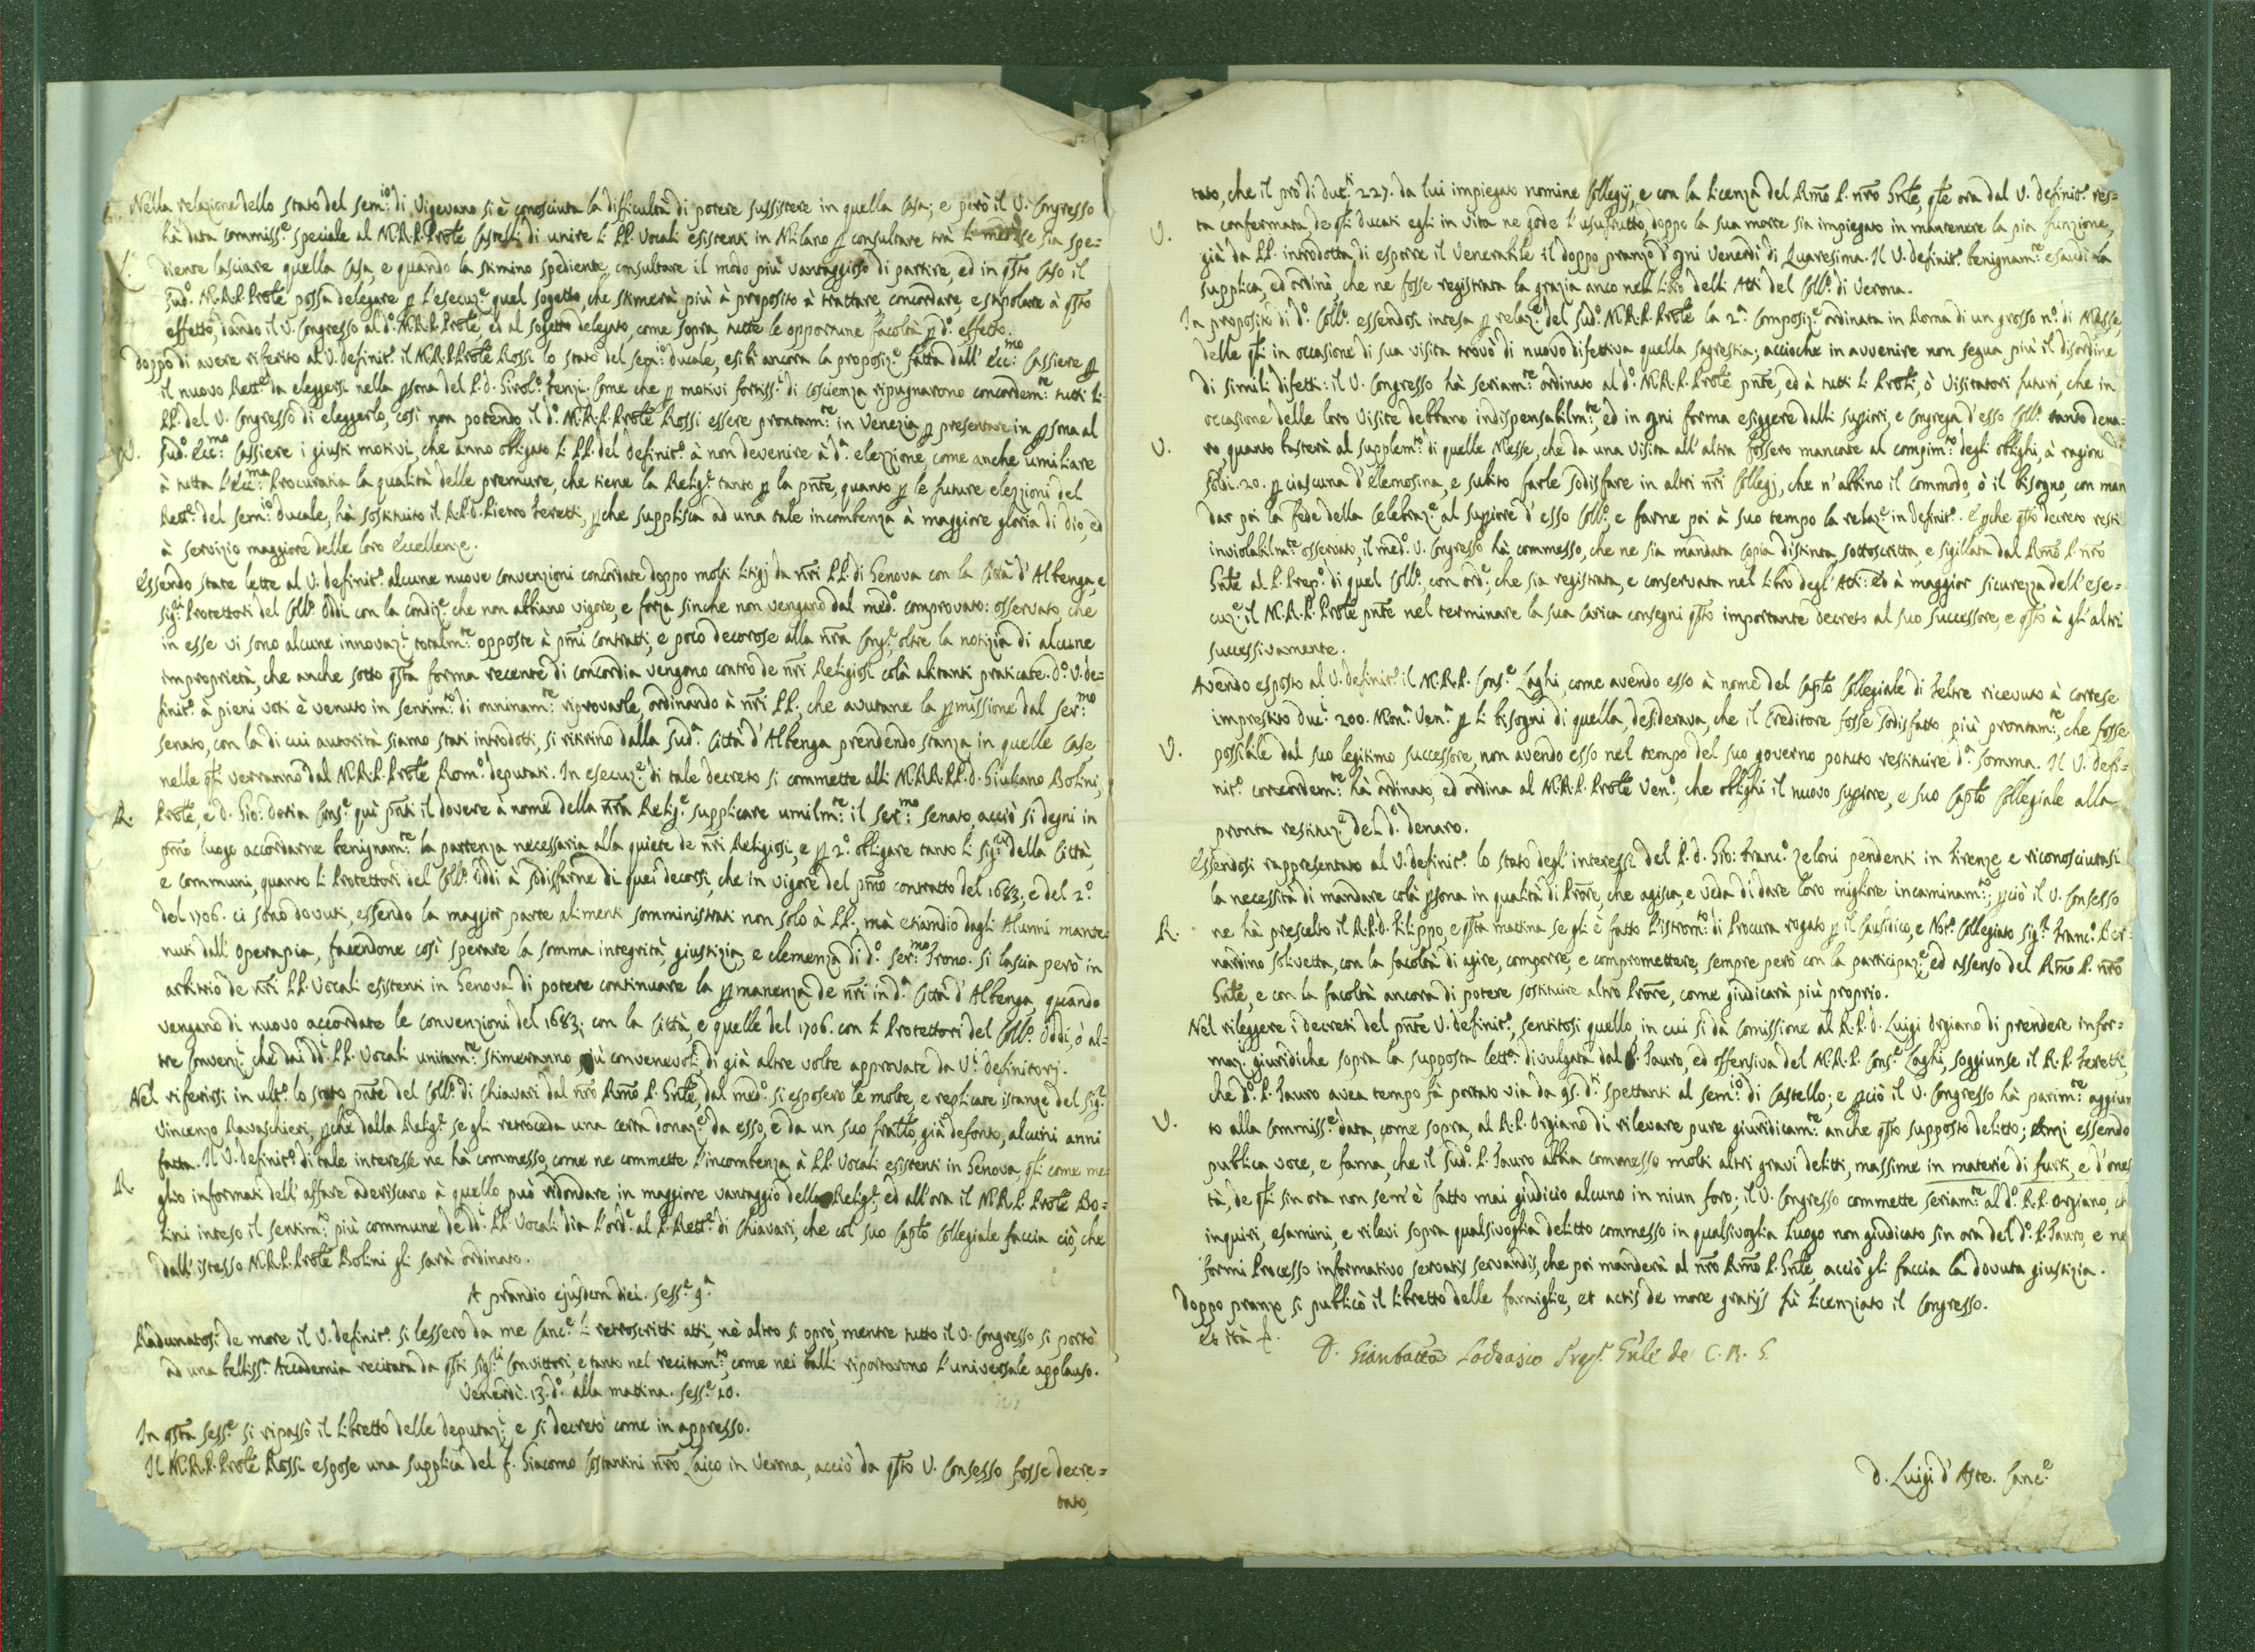 Nella relazione dello stato del sem:io di Vigevano si è conosciuta la difficultà di potere sussistere in quella Casa; e però il V. Congresso
hà data commiss.e speciale al M.R.P. Prole Castelli di unire li PP. Vocali esistenti in Milano p consultare trà li se sia spe=
L. diente lasciare quella Casa, e quando la stimino spediente, consultare il modo più vantaggioso di partire, ed in qsto Caso il
Sud.o M.R.P. Prole possa delegare p l'esecuz.e quel sogetto, che stimerà più à proposito à trattare, concordare, e stipolare à qsto
effetto, dando il V. Congresso al d.o M.R.P. Prole, ed al sogetto delegato, come sopra, tutte le opportune facoltà p d.o effetto.
doppo di avere riferito al V. definit.o il M.R.P. Prole Rossi lo stato del sem:io ducale, esibì ancora la proposiz.e fatta dall' Ecc:mo Cassiere p
il nuovo Rett.e da eleggersi nella psona del P. d. Girol.o Fenzi. Come che p motivi fortiss.i di coscienza ripugnarono concordem:te tutti li
PP. del V. Congresso di eleggerlo, così non potendo il d.o M.R.P. Prole Rossi essere prontam:te in Venezia p presentare in psona al
V. Sud.o Ecc:mo Cassiere i giusti motivi, che anno obligato li PP. del definit.o à non devenire à d.a elezzione, come anche umiliare
à tutta l'Ecc:ma Procuratia la qualità delle premure, che tiene la Relig.e tanto p la pnte, quanto p le future elezzioni del
Rett.e del sem:io ducale, hà sostituito il R.P.d. Pietro Feretti, pche supplisca ad una tale incombenza à maggiore gloria di Dio, ed
à servizio maggiore delle loro Eccellenze.
Essendo state lette al V. definit.o alcune nuove convenzioni concordate doppo molti litigj da nri PP. di Genova con la Città d'Albenga, e
Sig:ri Protettori del Coll.o Oddi con la condiz.e che non abbiano vigore, e forza sinche non vengano dal med.o comprovate: osservato, che
in esse vi sono alcune innovaz.i totalm:te opposte à pmi contratti, e poco decorose alla nra Cong.e oltre la notizia di alcune
improprietà, che anche sotto qsta forma recente di concordia vengono contro de nri Religiosi colà abitanti praticate. d.o V. de=
finit.o à pieni voti è venuto in sentim:to di onninam:te riprovarle, ordinando à nri PP., che avutane la pmissione dal Ser:mo
Senato, con la di cui autorità siamo stati introdotti, si ritirino dalla sud.a Città d'Albenga prendendo stanza in quelle Case
nelle qli verranno dal M.R.P. Prole Rom.o deputati. In esecuz.e di tale decreto si commette alli M.RR.PP.d. Giuliano Bolini,
R. Prole, e d. Gio: Doria Cons.e quì pnti il dovere à nome della nra Relig.e supplicare umilm:te il Ser:mo Senato, acciò si degni in
pmo luogo accordarne benignam:te la partenza necessaria alla quiete de nri Religiosi, e p 2.o obligare tanto li Sig:ri della Città,
e Communi, quanto li Protettori del Coll.o Oddi à sodisfarne di quei decorsi, che in vigore del pmo contratto del 1683, e del 2.o
del 1706. ci sono dovuti, essendo la maggior parte alimenti somministrati non solo à PP., mà etiamdio dagli Alunni mante=
nuti dall' Operapia, facendone così sperare la somma integrità, giustizia, e clemenza di d.o Ser:mo Trono. Si lascia però in
arbitrio de nri PP. Vocali esistenti in Genova di potere continuare la pmanenza de nri in d.a Città d'Albenga, quando
vengano di nuovo accordate le convenzioni del 1683; con la Città, e quelle del 1706. con li Protettori del Coll.o Oddi, ò al=
tre convenz.i che dai dd.i PP. Vocali unitam:te stimeranno più convenevoli, di già altre volte approvate da V.i definitorj.
Nel riferirsi in ult.o lo stato pnte del Coll.o di Chiavari dal nro Rmo P. Gnle, dal med.o si esposero le molte, e replicate istanze del Sig.r
Vincenzo Ravaschieri, pche dalla Relig.e se gli retroceda una certa donaz.e da esso, e da un suo fratto, già defonto, alcuni anni
fatta. Il V. definit.o di tale interesse ne hà commesso, come ne commette l'incombenza à PP. Vocali esistenti in Genova, qli come me=
R. glio informati dell'affare aderiscano à quello può ridondare in maggiore vantaggio della Relig.e, ed all'ora il M.R.P. Prole Bo=
lini inteso il sentim:to più commune de dd.i PP. Vocali dia l'ord.e al P. Rett.e di Chiavari, che col suo Caplo Collegiale faccia ciò, che
dall'istesso M.R.P. Prole Bolini gli sarà ordinato.
A prandio ejusdem diei. Sess.e 9.a
Radunatosi de more il V. definit.o si lessero da me Canc.e li retroscritti atti, nè altro si oprò, mentre tutto il V. Congresso si portò
ad una belliss.a Accademia recitata da qsti Sig:ri Convittori, e tanto nel recitam:to, come nei balli riportorono l'universale applauso.
Venerdì. 13. d.o alla mattina. Sess.e 10.
In qsta Sess.e si ripassò il libretto delle deputaz.i e si decretò come in appresso.
Il M.R.P. Prole Rossi espose una supplica del f. Giacomo Costantini nro Laico in Verona, acciò da qsto V. Consesso fosse decre=
tato,
tato, che il prò di duc.ti 227. da lui impiegato nomine Collegij, e con la licenza del Rmo P. nro Gnle, qle ora dal V. definit.o res=
V. ta confermata, de qli ducati egli in vita ne gode l'usufrutto, doppo la sua morte sia impiegato in mantenere la pia funzione,
già da PP. introdotta, di esporre il Venerabile il doppo pranzo d'ogni Venerdì di Quaresima. Il V. definit.o benignam:te esaudì la
supplica, ed ordinò, che ne fosse registrata la grazia anco nell libro delli Atti del Coll.o di Verona.
In proposito di d.o Coll.o essendosi intesa p relaz.e del sud.o M.R.P. Prole la 2.a composiz.e ordinata in Roma di un grosso n.o di Messe,
delle qli in occasione di sua visita trovò di nuovo difettiva quella sagrestia; accioche in avvenire non segua più il disordine
di simili difetti: il V. Congresso hà seriam:te ordinato al d.o M.R.P. Prole pnte, ed à tutti li Proli, ò Visitatori futuri, che in
occasione delle loro Visite debbano indispensabilm:te, ed in ogni forma esiggere dalli supiori, e Congrega d'esso Coll.o tanto dena=
V. ro quanto basterà al supplem:to di quelle Messe, che da una Visita all'altra fossero mancate al compim:to degli oblighi, à ragion di
soldi. 20. p ciascuna d'elemosina, e subito farle sodisfare in altri nri Collegj, che n'abbino il commodo, ò il bisogno, con man
dar poi la fede della Celebraz.e al supiore d'esso Coll.o e farne poi à suo tempo la relaz.e in definit.o. E pche qsto decreto resti
inviolabilm:te osservato, il med.o V. Congresso hà commesso, che ne sia mandata copia distinta, sottoscritta, e sigillata dal Rmo P. nro
Gnle al P. Prep.o di quel Coll.o, con ord.e, che sia registrata, e conservata nel libro degl'Atti: ed à maggior sicurezza dell'ese=
cuz.e il M.R.P. Prole pnte nel terminare la sua Carica consegni qsto importante decreto al suo successore, e qsto à gl'altri
successivamente.
Avendo esposto al V. definit.o il M.R.P. Cons.e Laghi, come avendo esso à nome del Caplo Collegiale di Feltre ricevuto à cortese
imprestito Duc.i 200. Mon.a Ven.a p li bisogni di quella, desiderava, che il Creditore fosse sodisfatto più prontam:te, che fosse
V. possibile dal suo legitimo successore, non avendo esso nel tempo del suo governo potuto restituire d.a somma. Il V. defi=
nit.o concordem:te hà ordinato, ed ordina al M.R.P. Prole Ven.o, che oblighi il nuovo supiore, e suo Caplo Collegiale alla
pronta restituz.e del d.o denaro.
Essendosi rappresentato al V. definit.o lo stato degl'interessi del P.d. Gio: Franc.o Zeloni pendenti in Firenze e riconosciutasi
la necessità di mandare colà psona in qualità di Prore, che agisca, e veda di dare loro migliore incaminam:to; pciò il V. Consesso
R. ne hà prescelto il R.P.d. Filippo, e qsta mattina se gli è fatto l'istrom:to di Procura rogato p il Causidico, e Not.o Collegiato Sig.r Franc.o Ber=
nardino Solivetta, con la facoltà di agire, comporre, e compromettere, sempre però con la participaz.e, ed assenso del Rmo P. nro
Gnle, e con la facoltà ancora di potere sostituire altro Prore, come giudicarà più proprio.
Nel rileggere i decreti del pnte V. definit.o, sentitosi quello, in cui si dà comissione al R.P.d. Luigi Orgiano di prendere infor=
maz.i giuridiche sopra la supposta lett.a divulgata dal P. Fauro, ed offensiva del M.R.P. Cons.e Laghi, soggiunse il R.P. Feretti,
che d.o P. Fauro avea tempo fà portato via da 95. d.ti spettanti al sem:io di Castello; e pciò il V. Congresso hà parim:te aggiun
V. to alla Commiss.e data, come sopra, al R.P. Orgiano di rilevare pure giuridicam:te anche qsto supposto delitto; Anzi essendo
publica voce, e fama, che il sud.o P. Fauro abbia commesso molti altri gravi delitti, massime in materie di furti, e d'ones
tà, de qli sin ora non sem'è fatto mai giudicio alcuno in niun foro; il V. Congresso commette seriam:te al d.o R.P. Orgiano, ch
inquiri, esamini, e rilevi sopra qualsivoglia delitto commesso in qualsivoglia luogo non giudicato sin ora del d.o P. Fauro, e ne
formi Processo informativo servatis servandis, che poi manderà al nro Rmo P. Gnle, acciò gli faccia la dovuta giustizia.
Doppo pranzo si publicò il libretto delle famiglie, et actis de more gratijs fù licenziato il Congresso.
et ità
D. Gianbatta Lodovasio Prep. Gnle de C. R. S.
D. Luigi d'Aste. Canc.e